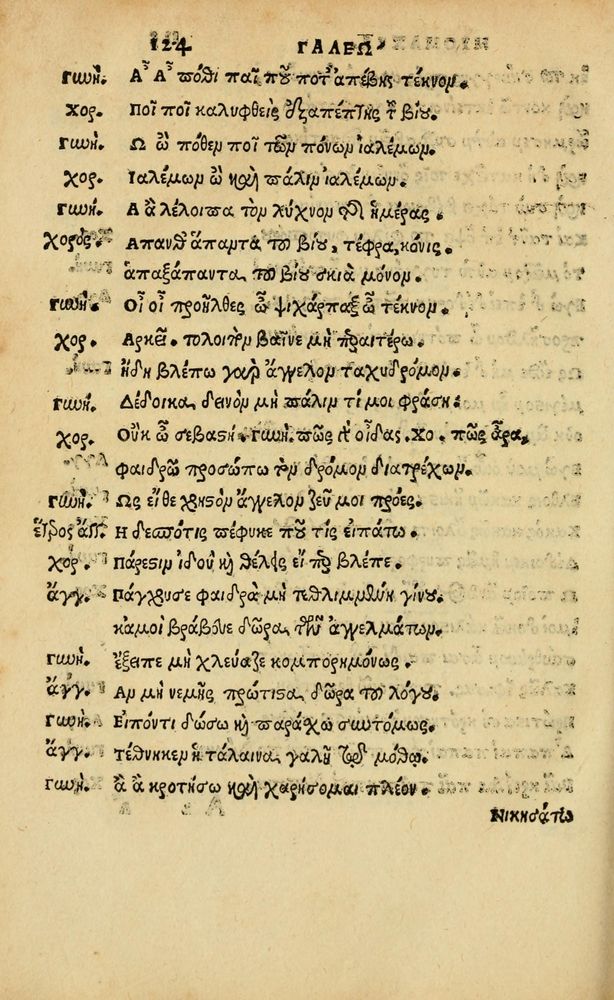 124 ΓΑΛΕΩ
γωὴ. Α῏ Α῏ πόθι παῖ ποῦ ποτ' ἀπέβης τέκνον.
χορ. Ποῖ ποῖ καλυφθεὶς ἐξαπέπτης τοῦ βίου.
γωὴ. Ω ὢ πόθεν ποῖ τῶν πόνων ἰαλέμων.
χορ. Ιαλέμων ὢ καὶ πάλιν ἰαλέμων.
γωὴ. Α ἂ λέλοιπα τὸν λύχνον τῆς ἡμέρας.
χορὸς. Απανθ' ἅπαντα τοῦ βίου, τέφρα, κόνις.
ἁπαξάπαντα τοῦ βίου σκιὰ μόνον.
γωὴ. Οἶ οἶ προῆλθες ὦ ψιχάρπαξ ὦ τέκνον.
χορ. Αρκεῖ. τολοιπὸν βαῖνε μὴ περαιτέρω.
ἤδη βλέπω γὰρ ἄγγελον ταχυδρόμον.
γωὴ. Δέδοικα, δεινὸν μὴ πάλιν τί μοι φράσῃ.
χορ. Ουκ ὦ σεβαστή. γωὴ. πῶς σὺ οἶδας. Χο. πῶς ἄρα,
φαιδρῷ προσώπῳ τὸν δρόμον διατρέχων.
γωὴ. Ως εἴθε χρηστὸν ἄγγελον ζεῦ μοι πρόες.
ἕτερος ἄγγ. Η δεσπότις πέφυκε ποῦ τίς εἰπάτω.
χορ. Πάρεστιν ἰδοὺ καὶ θέλεις εἴπερ βλέπε.
ἄγγ. Πάγχρυσε φαιδρὰ μὴ τεθλιμμένη γίνου.
κἀμοὶ βράβευε δῶρα, τῶν ἀγγελμάτων.
γωὴ. Εξειπε μὴ χλεύαζε κομπορημόνως.
ἄγγ. Αν μὴ νεμῇς πρώτιστα, δῶρα τοῦ λόγου.
γωὴ. Ειπόντι δώσω καὶ παράσχω συντόμως.
ἄγγ. τέθνηκεν ἡ τάλαινα, γαλῆ τῷ μόθῳ.
γωὴ. ἂ ἂ κροτήσω καὶ χαρήσομαι πλέον.
Νικησάτω